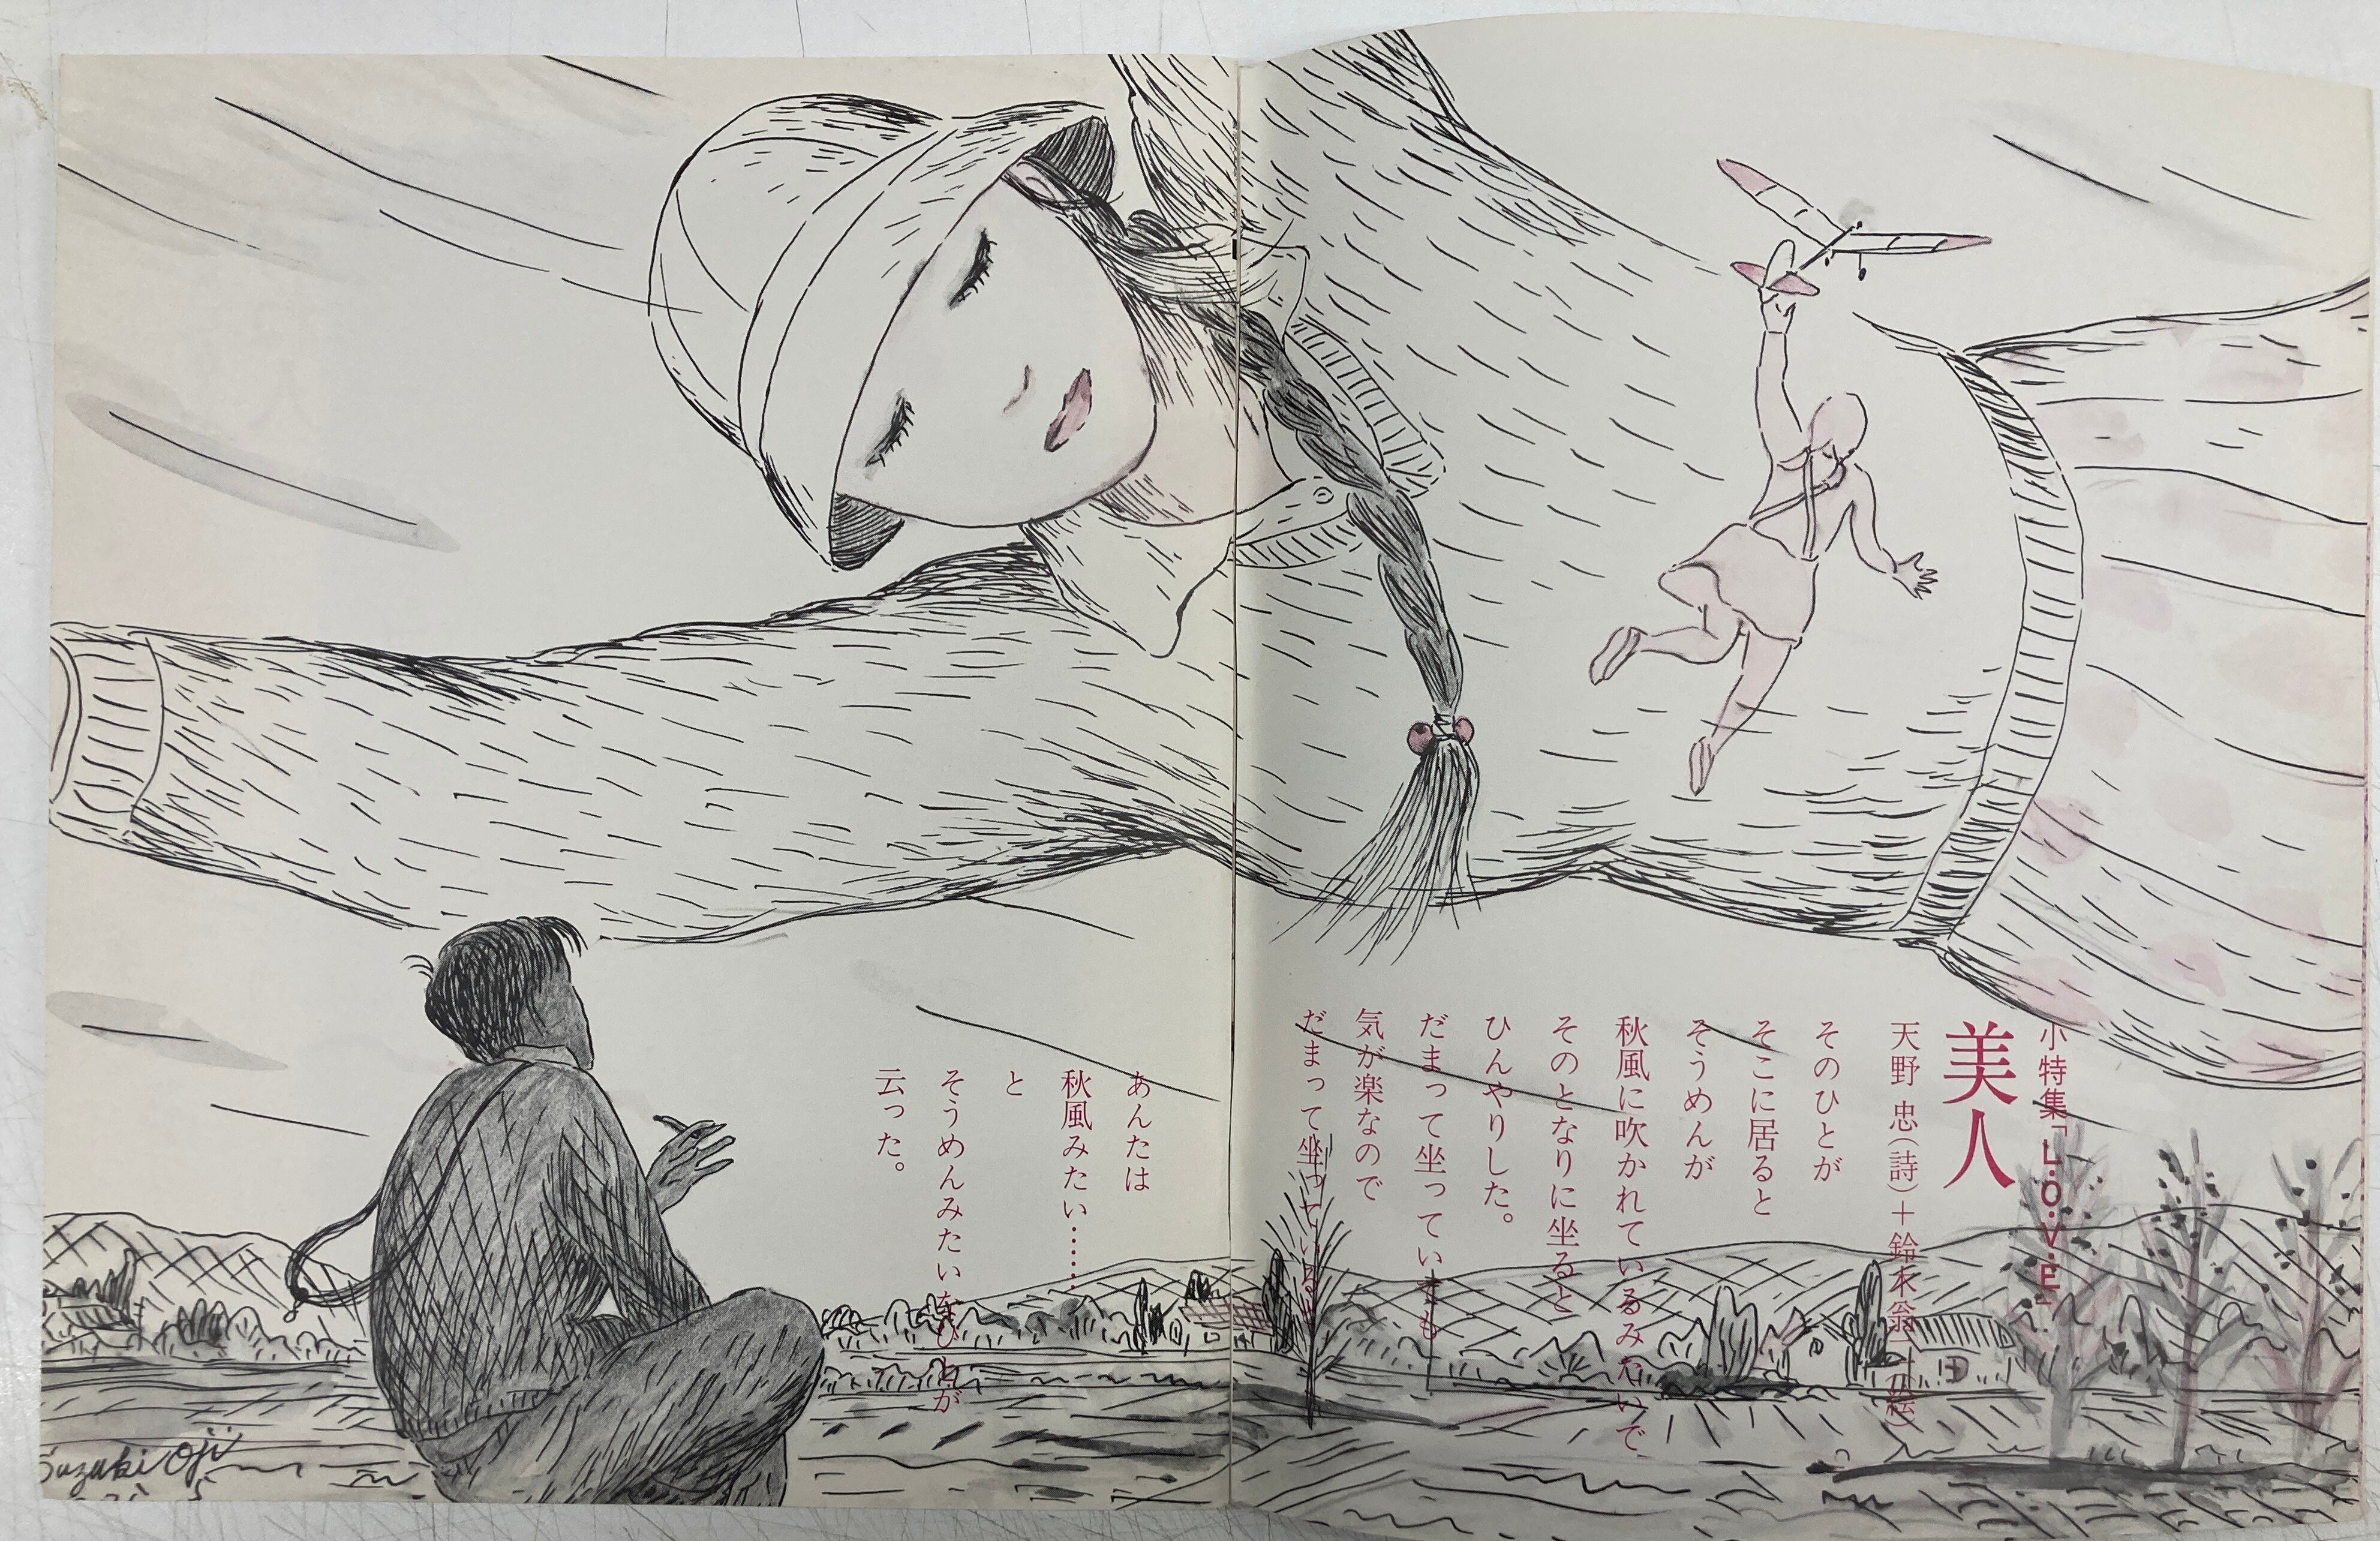 小特集「L・O・V・E」
美人
天野 忠(詩)＋鈴木翁二(絵)
そのひとが
そこに居ると
そうめんが
秋風に吹かれているみたいで、
そのとなりに坐ると
ひんやりした。
だまって坐っていても
気が楽なので
だまって坐っている。
あんたは
秋風みたい……
と
そうめんみたいなひとが
云った。
Suzuki Oji